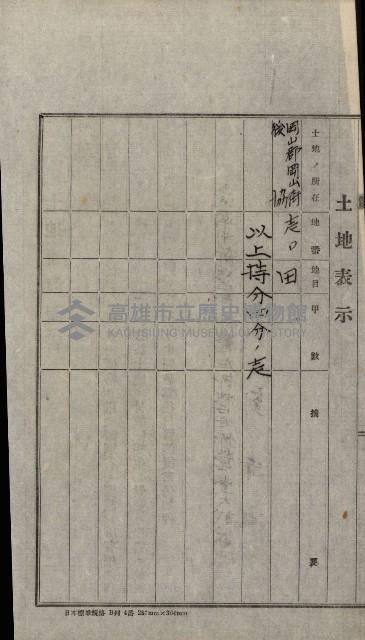 土地表示
土地ノ所在 地番 地目 甲數 摘要
岡山郡岡山街
田
以上持分四分ノ壱
高雄市立歷史博物館
KAOHSIUNG MUSEUM OF HISTORY
日本標準規格 B列 4番 257mm×364mm